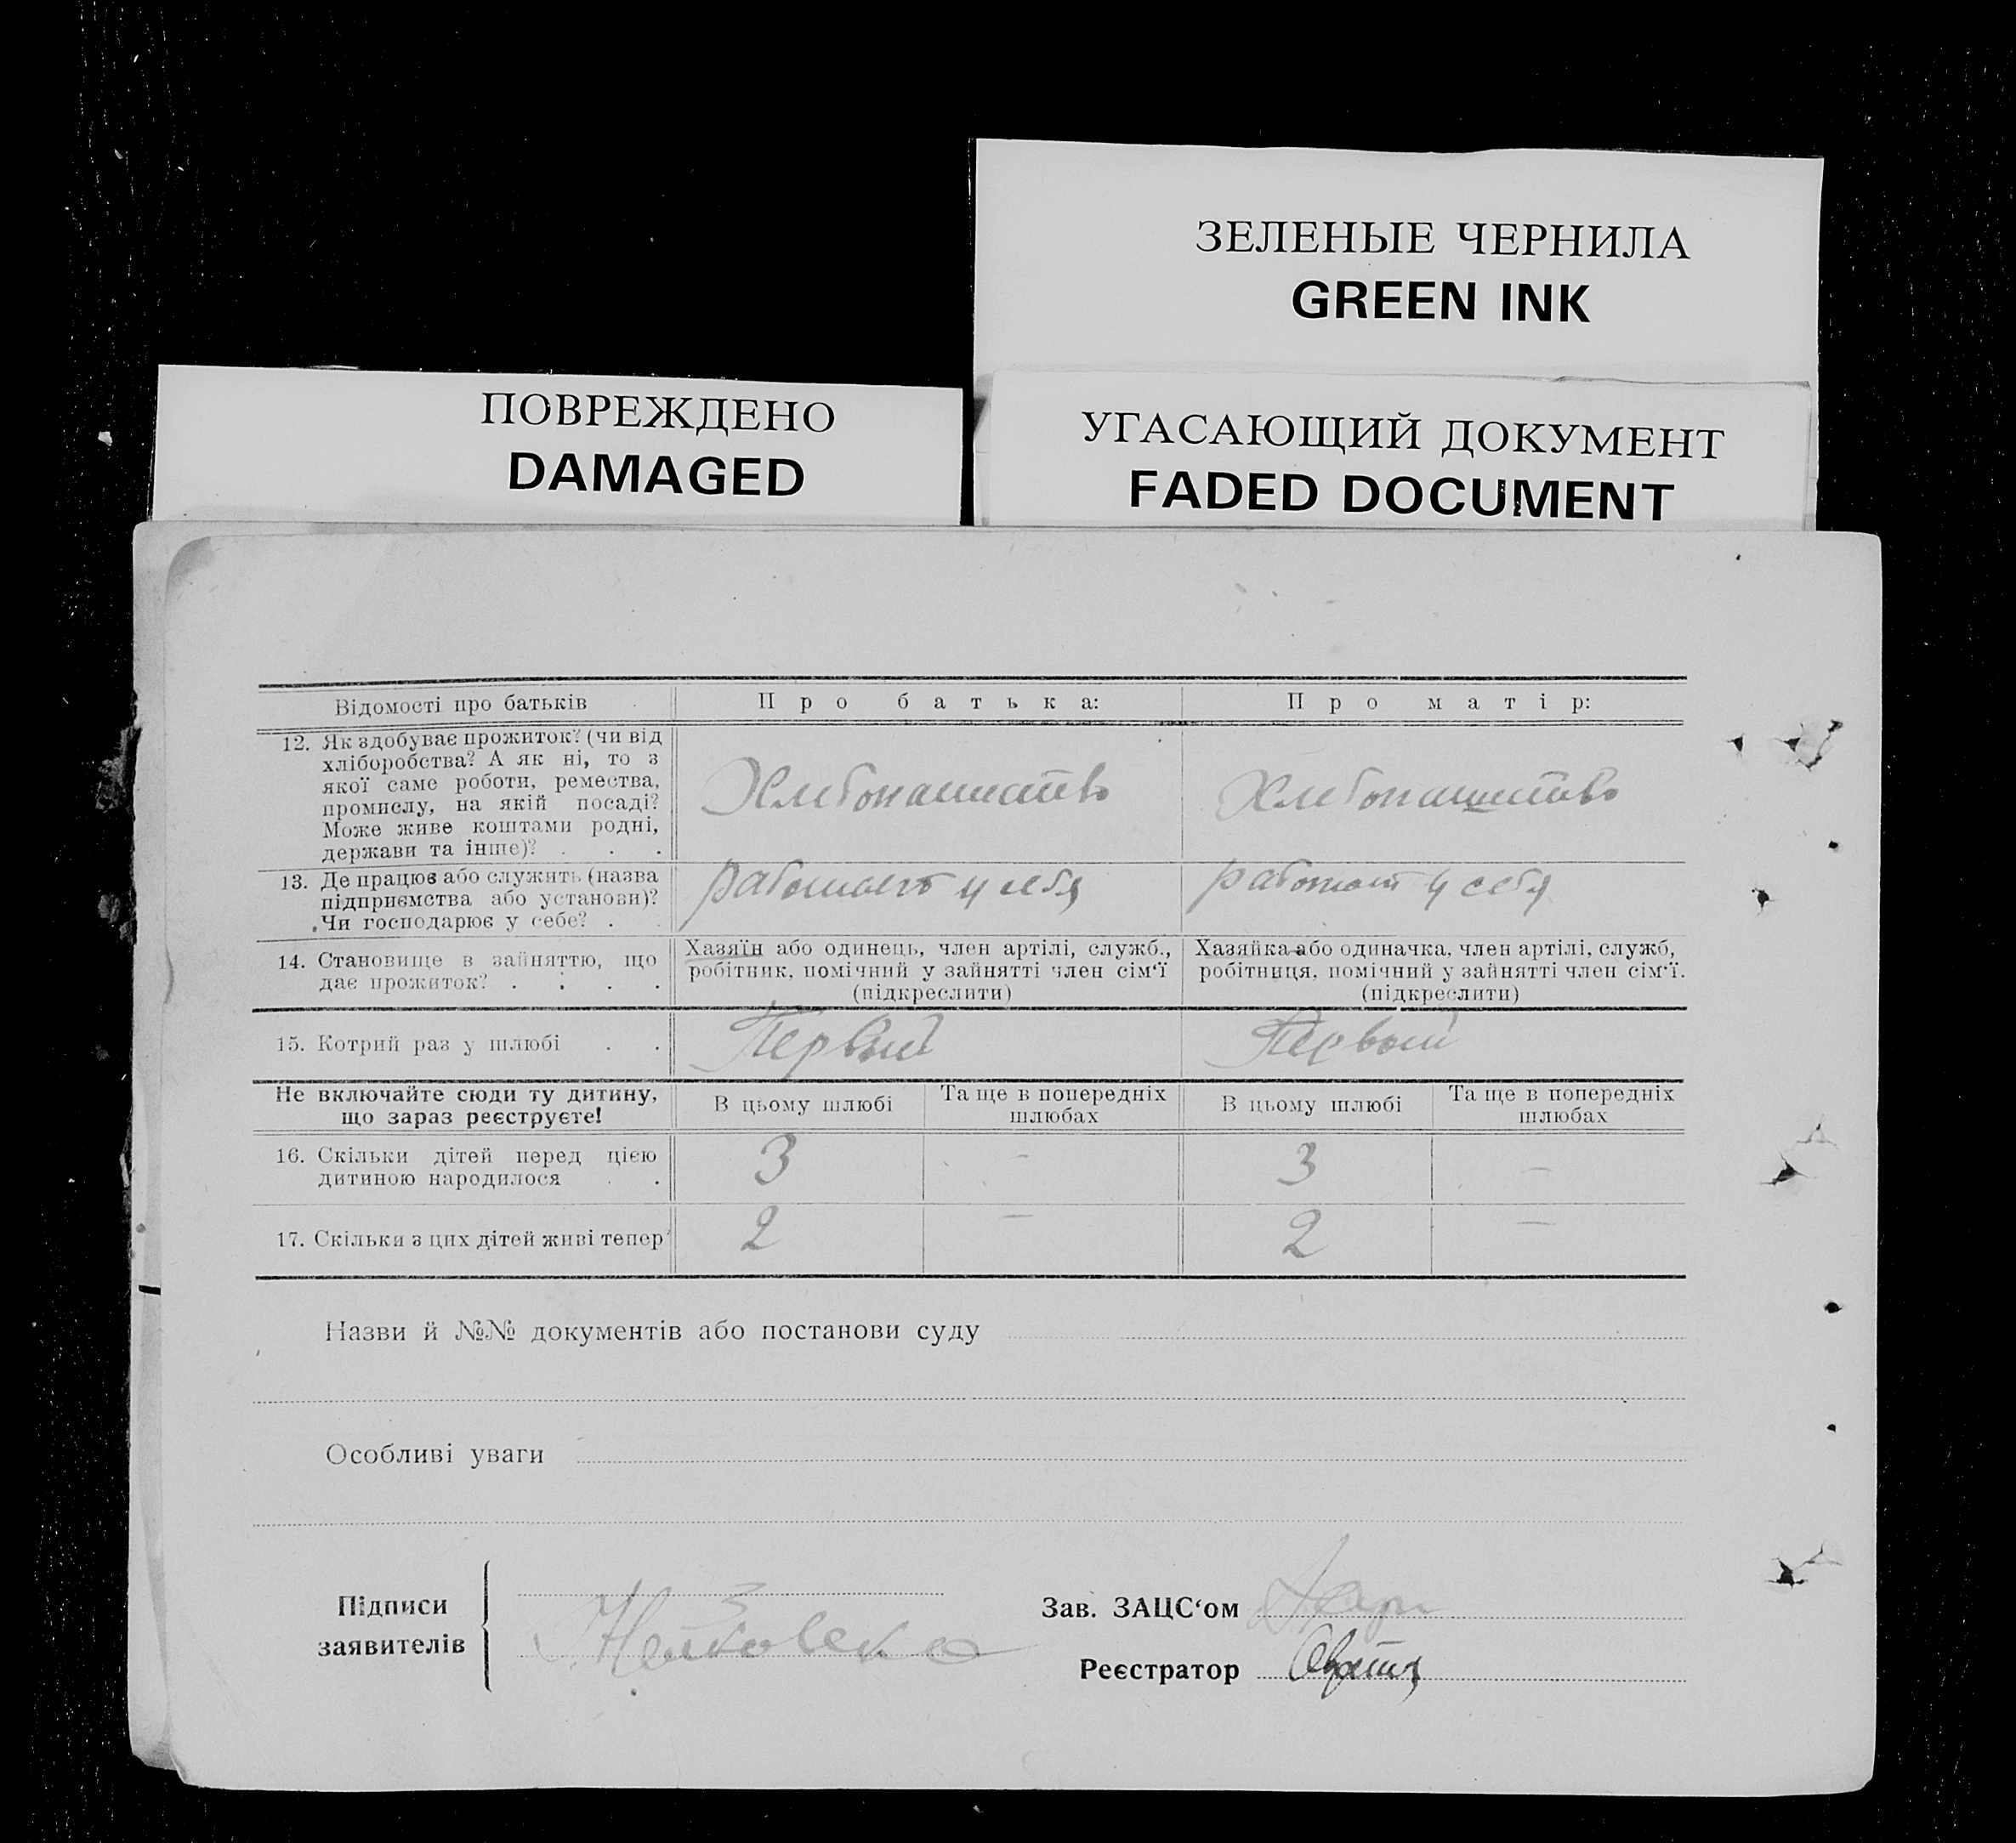 ЗЕЛЕНЫЕ ЧЕРНИЛА
GREEN INK
ПОВРЕЖДЕНО
DAMAGED
УГАСАЮЩИЙ ДОКУМЕНТ
FADED DOCUMENT
Відомості про батьків
Про батька:
Про матір:
12. Як здобуває прожиток? (чи від
хліборобства? А як ні, то з
якої саме роботи, ремества,
промислу, на якій посаді?
Може живе коштами родні,
держави та інше)? . . .
Хлебопашество
Хлебопашество
13. Де працює або служить (назва
підприємства або установи)?
Чи господарює у себе? .
работает у себя
работает у себя
14. Становище в зайняттю, що
дає прожиток? . . . .
Хазяїн або одинець, член артілі, служб.,
робітник, помічний у зайнятті член сім‘ї
(підкреслити)
Хазяйка або одиначка, член артілі, служб,
робітниця, помічний у зайнятті член сім‘ї.
(підкреслити)
15. Котрий раз у шлюбі . .
Первый
Первый
Не включайте сюди ту дитину,
що зараз реєструєте!
В цьому шлюбі
Та ще в попередніх
шлюбах
В цьому шлюбі
Та ще в попередніх
шлюбах
16. Скільки дітей перед цією
дитиною народилося . .
3
-
3
—
17. Скільки з цих дітей живі тепер
2
—
2
—
Назви й №№ документів або постанови суду
Особливі уваги
Підписи
заявителів
Зав. ЗАЦС‘ом
Реєстратор